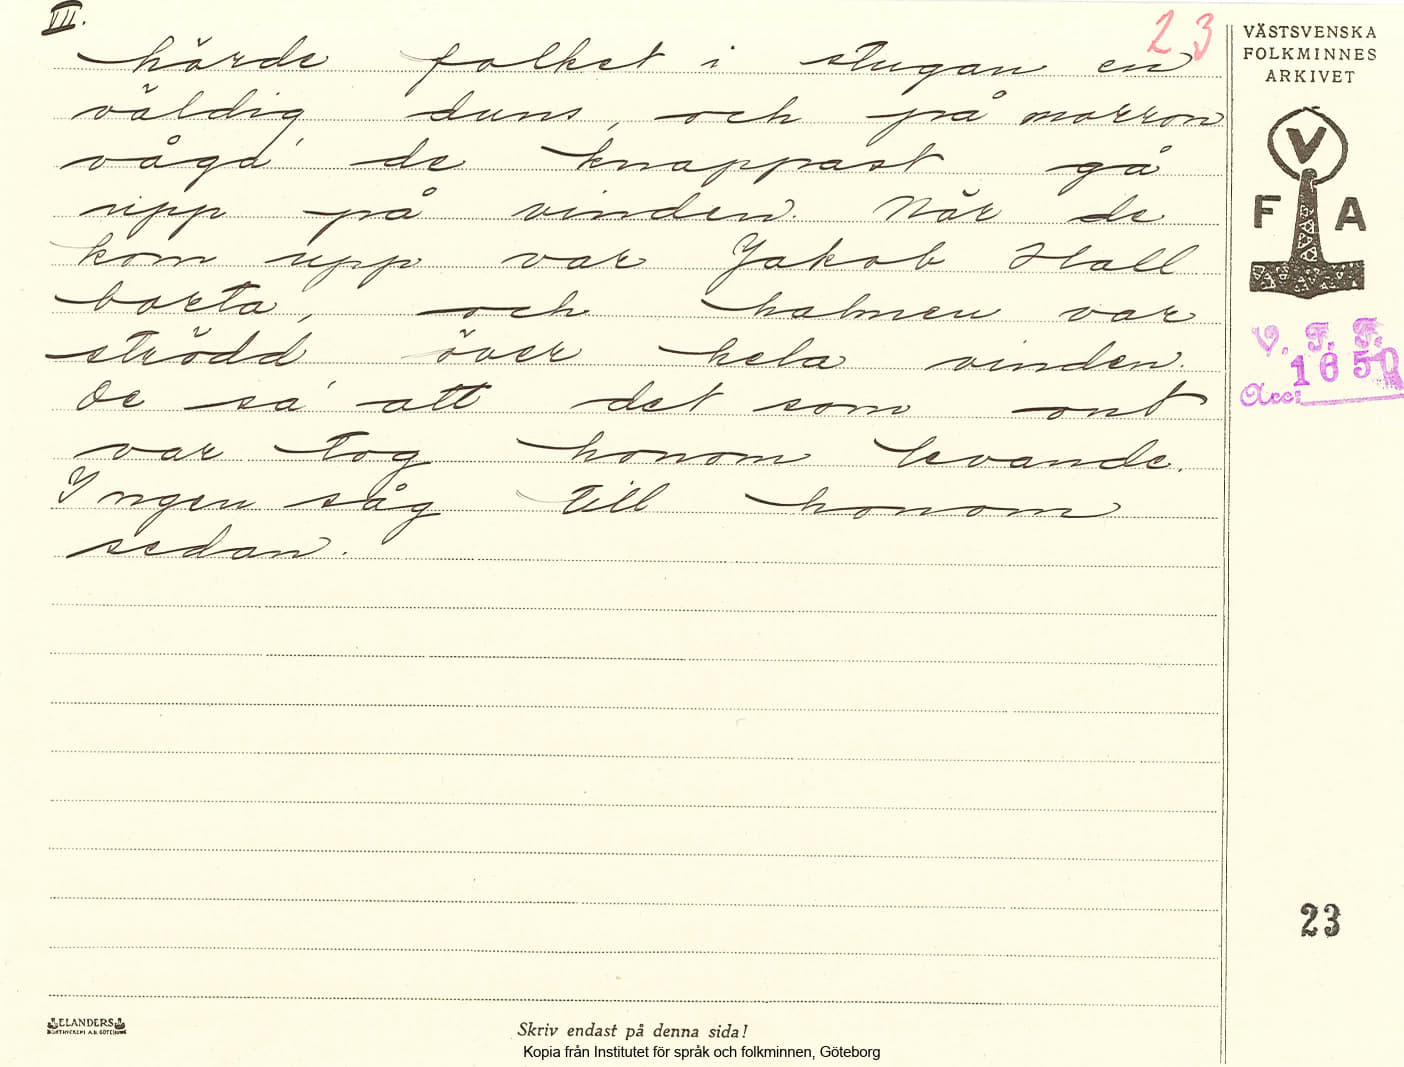 III.
23
hörde folket i stugan en
väldig duns, och på morron
våga' de knappast gå
upp på vinden. När de
kom upp var Jakob Hall
borta, och halmen var
strödd över hela vinden.
De sa' att det som ont
var tog honom levande.
Ingen såg till honom
sedan.
VÄSTSVENSKA
FOLKMINNES
ARKIVET
V
F A
V. F. F.
1650
Acc:
23
ELANDERS
Skriv endast på denna sida!
Kopia från Institutet för språk och folkminnen, Göteborg